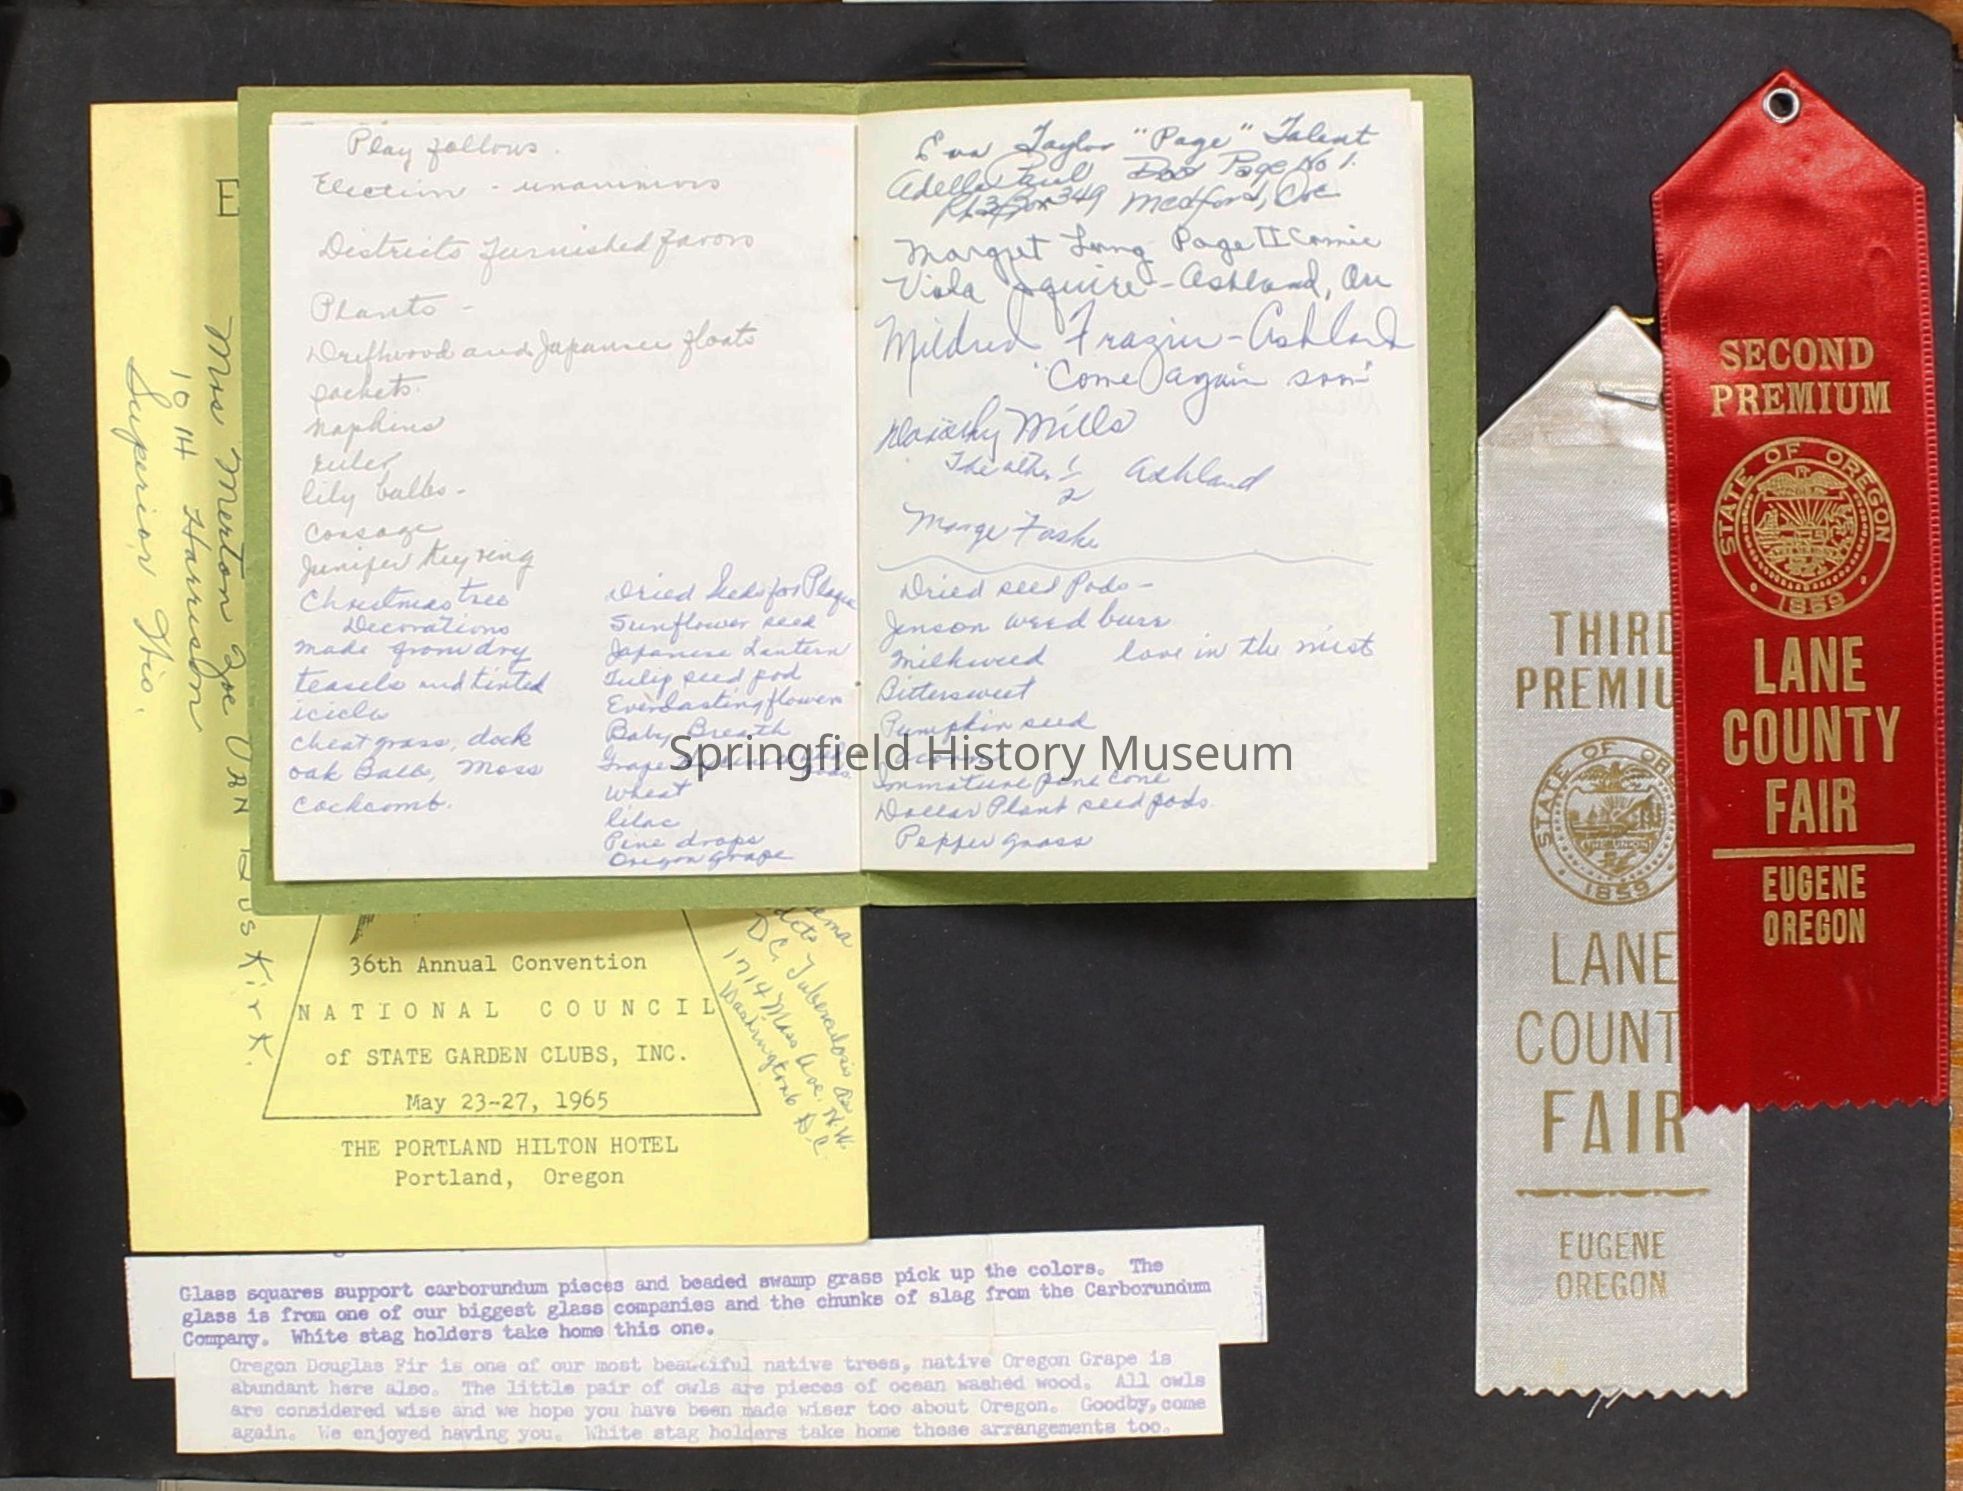 Play follows.
Election - unanimous
Districts furnished favors
Plants -
Driftwood and Japanese floats
packets.
napkins
ruler
lily bulbs -
Corsage
Juniper Key ring
Christmas tree
Decorations
made from dry
teasels and tinted
icicles
cheat grass, dock
oak Balls, Moss
Cockcomb.
Dried Seeds for Plaque
Sunflower seed
Japanese Lantern
Tulip seed pod
Everlasting flowers
Baby Breath
Grape
Wheat
lilac
Pine drops
Oregon grape
Eva Taylor "Page" Talent
Adella Page No 1.
Rt 3 Box 349 Medford, Ore
Margret Long Page II
Viola Squire - Ashland, Ore
Mildred Frazier - Ashland
"Come again soon"
Dorothy Mills
The other 1/2 Ashland
Marge
Dried seed Pods -
Jimson weed burr
Milkweed love in the mist
Bittersweet
Pumpkin seed
Immature pine cone
Dollar Plant seed pods.
Pepper grass
Springfield History Museum
E
Mrs Merton Zoe Van Buskirk.
1014 Harrison
Superior Wis.
36th Annual Convention
NATIONAL COUNCIL
of STATE GARDEN CLUBS, INC.
May 23-27, 1965
THE PORTLAND HILTON HOTEL
Portland, Oregon
D.C. Tuberculosis
1714 Mass Ave. N.W.
Washington 6 D.C.
Glass squares support carborundum pieces and beaded swamp grass pick up the colors. The
glass is from one of our biggest glass companies and the chunks of slag from the Carborundum
Company. White stag holders take home this one.
Oregon Douglas Fir is one of our most beautiful native trees, native Oregon Grape is
abundant here also. The little pair of owls are pieces of ocean washed wood. All owls
are considered wise and we hope you have been made wiser too about Oregon. Goodby, come
again. We enjoyed having you. White stag holders take home those arrangements too.
THIRD
PREMIU
STATE OF OR
1859
LANE
COUNT
FAIR
EUGENE
OREGON
SECOND
PREMIUM
STATE OF OREGON
1859
LANE
COUNTY
FAIR
EUGENE
OREGON